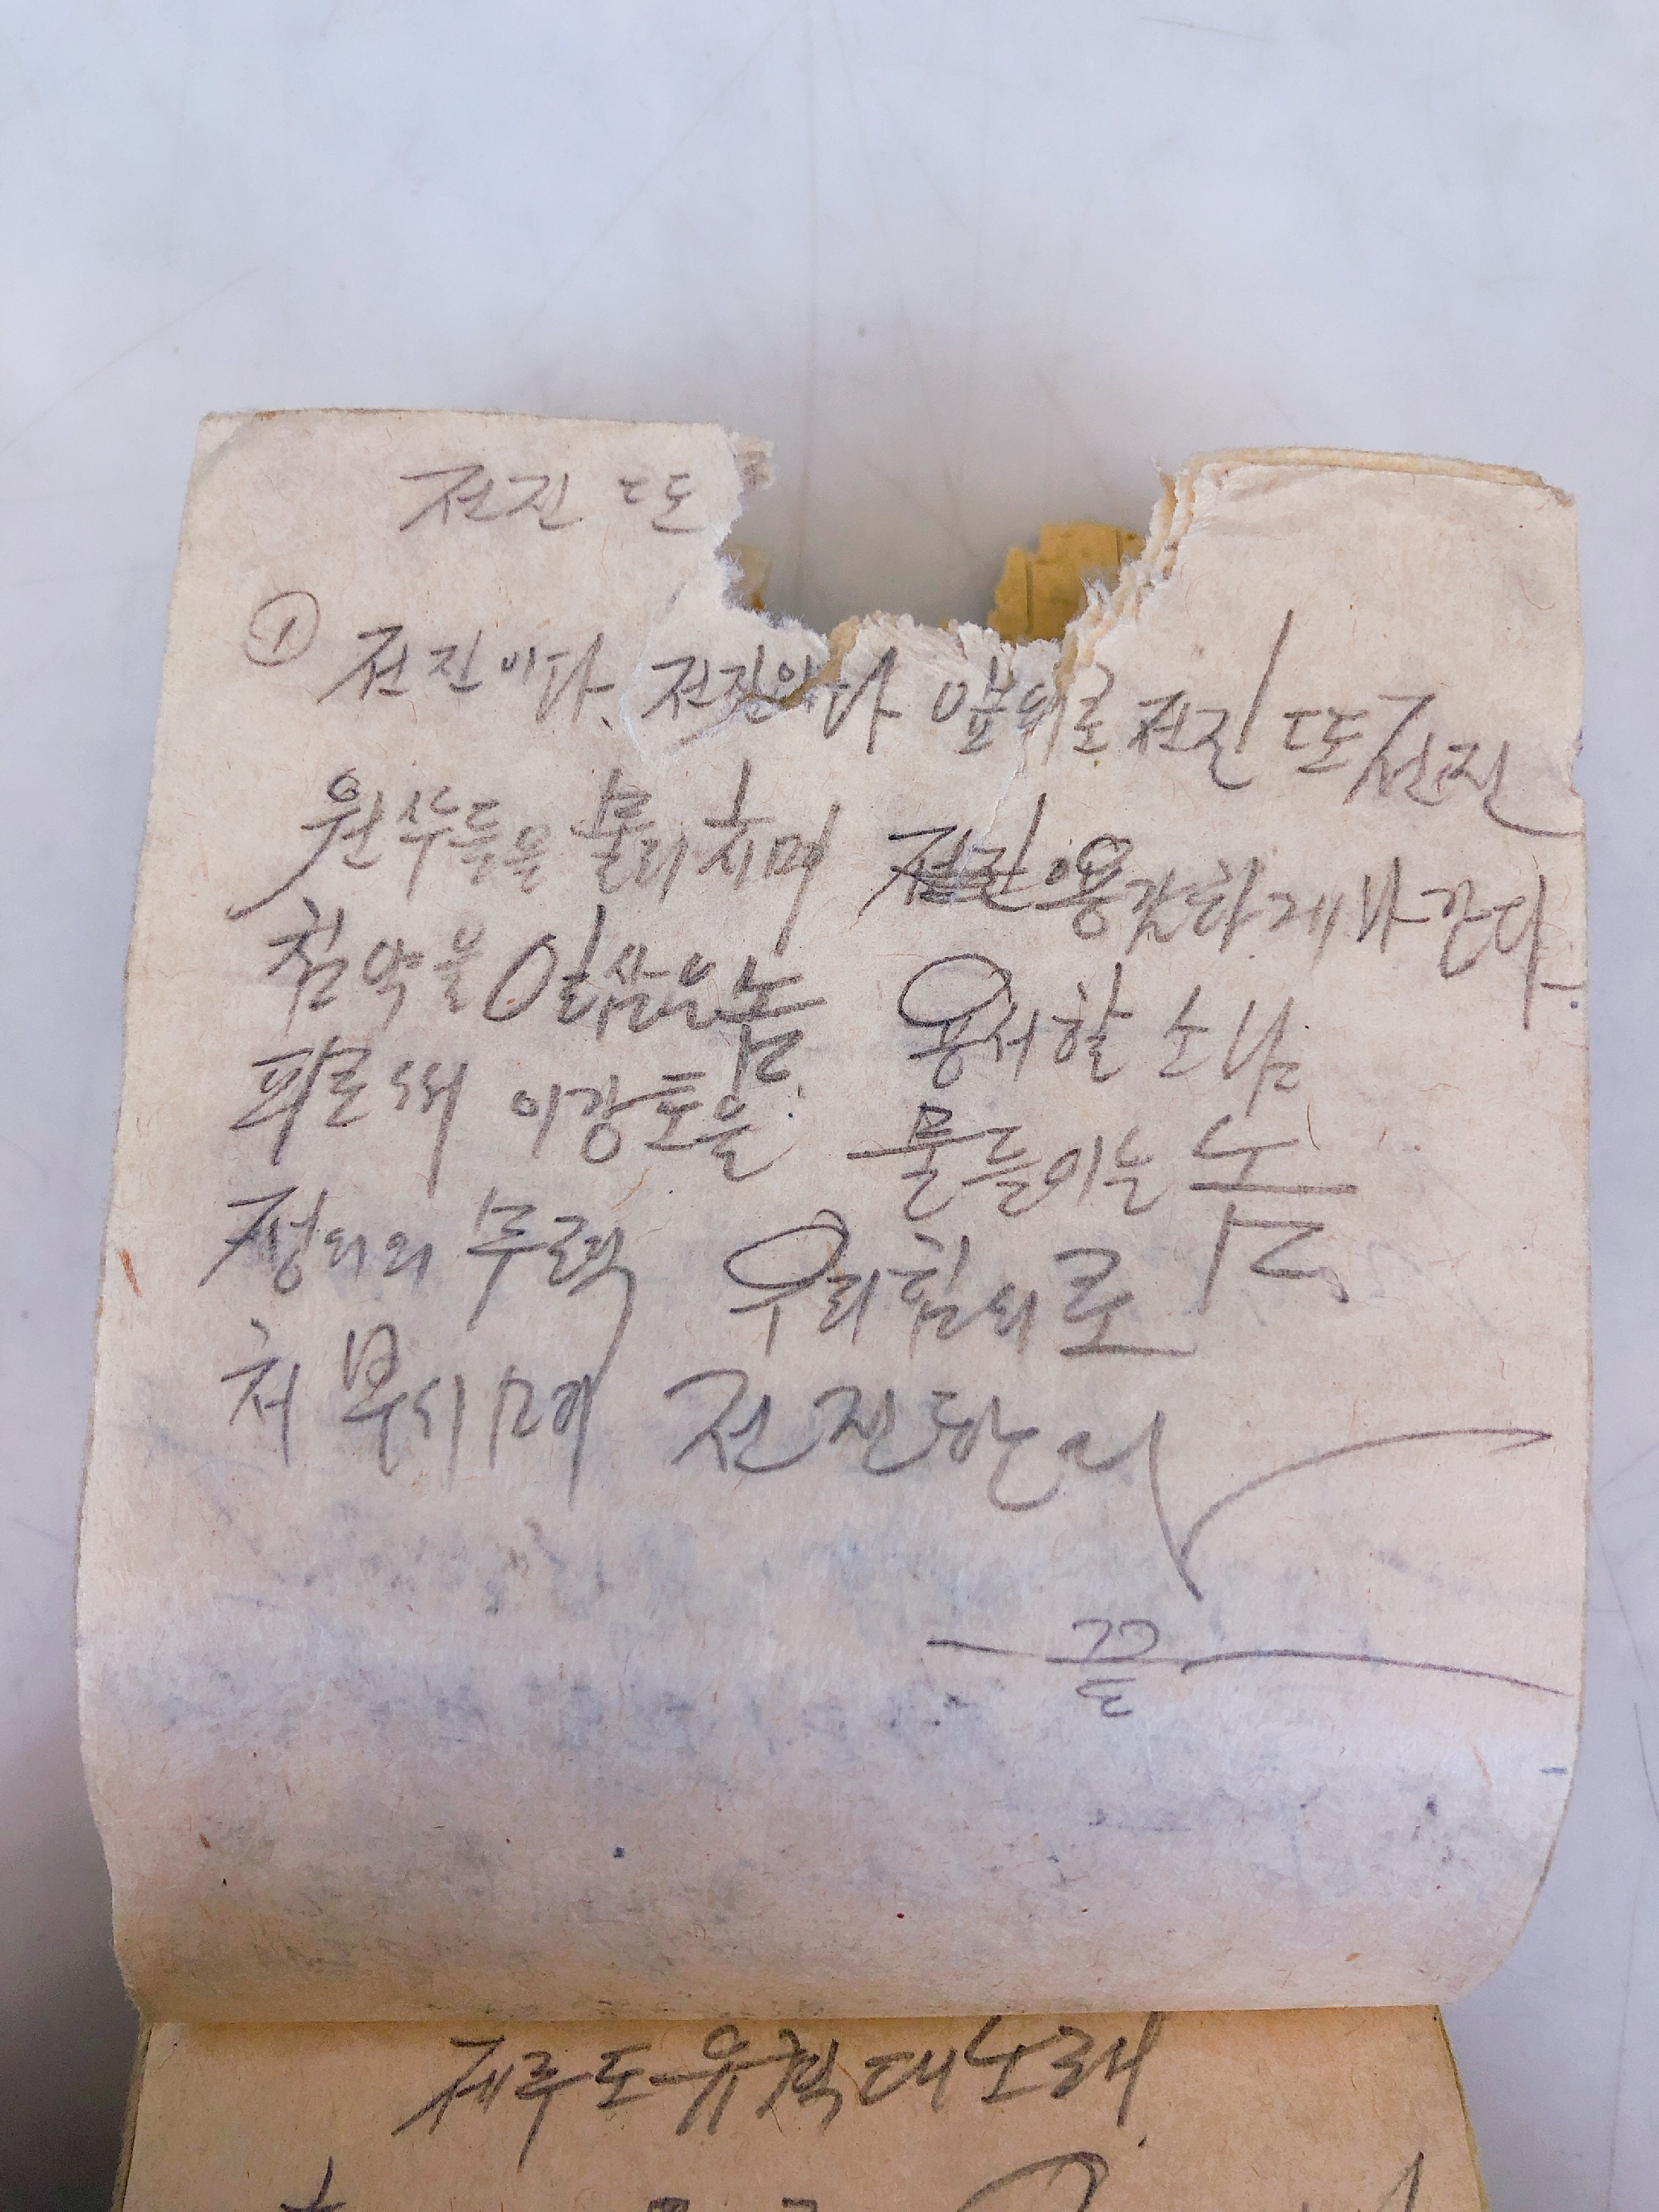 전진 또
① 전진이다. 전진이다 앞뒤로 전진 또 전진
원수들을 물리치며 용감하게 나간다.
침략을 일삼는 놈 용서할소냐
피로써 이강토를 물들이는 놈
정의의 무력 우리힘으로
처부시며 전진한다
끝
제주도유격대노래